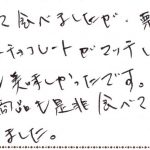 て食べましたが、
チョコレートがマッチし
美味しかったです。
商品も是非食べて
ました。